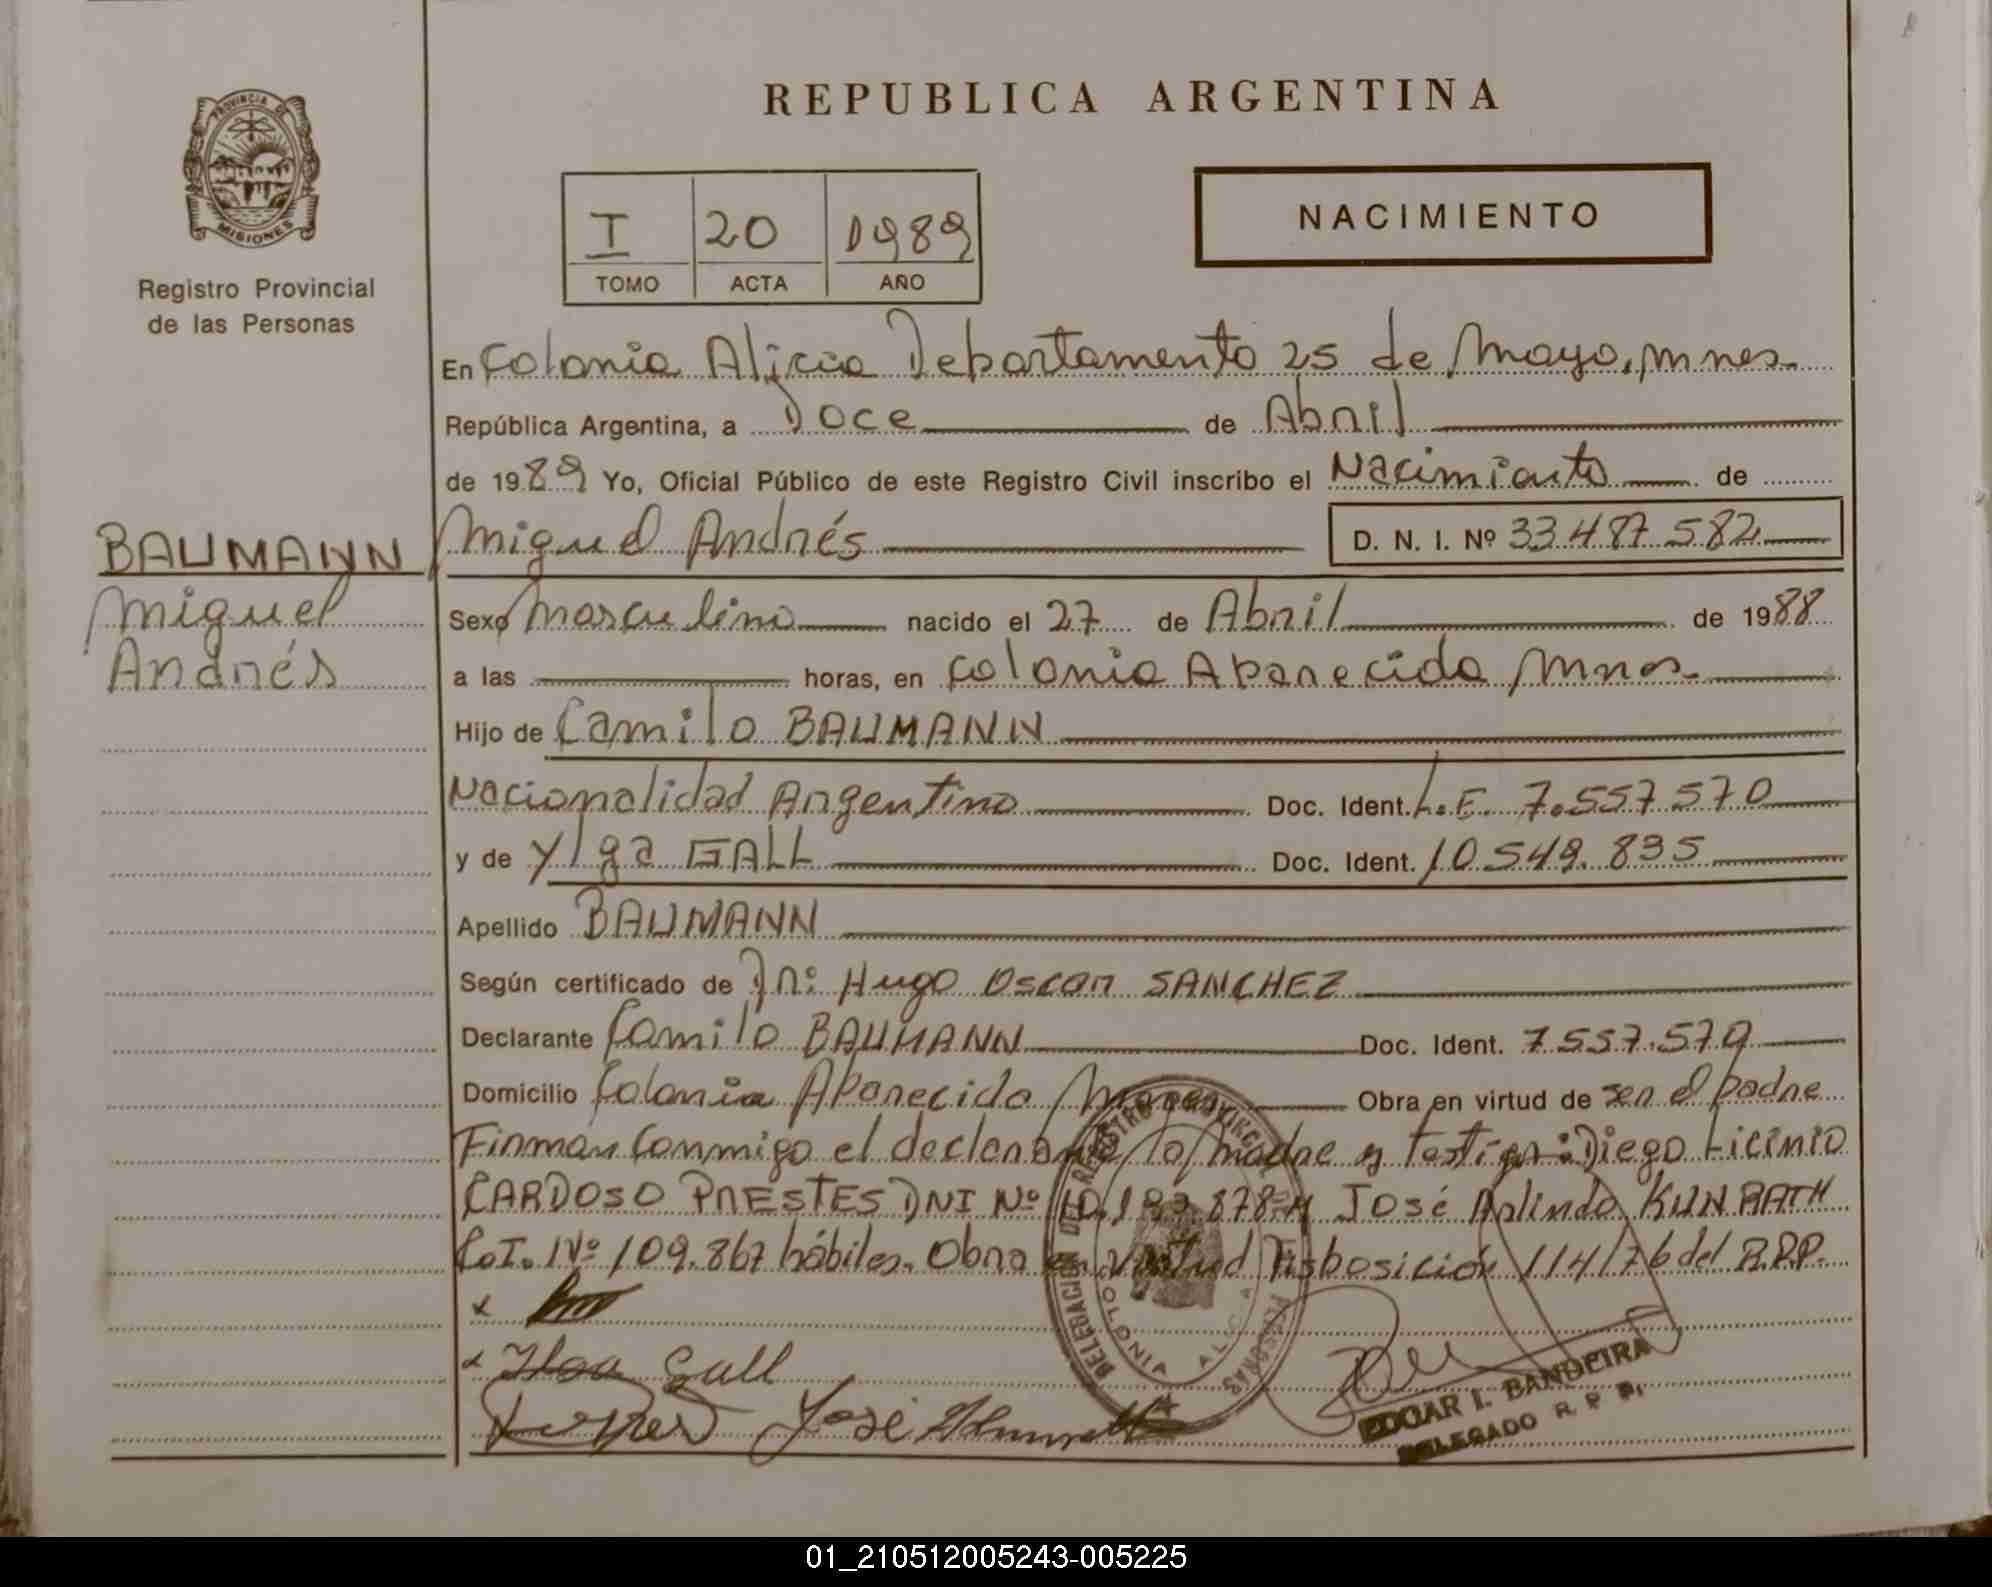 REPUBLICA ARGENTINA
PROVINCIA DE
MISIONES
Registro Provincial
de las Personas
I 20 1989
TOMO ACTA AÑO
NACIMIENTO
En Colonia Alicia Departamento 25 de Mayo, Mnes.
República Argentina, a Doce de Abril
de 1989 Yo, Oficial Público de este Registro Civil inscribo el Nacimiento de
BAUMANN
Miguel
Andrés
Miguel Andrés D. N. I. Nº 33.487.582
Sexo Masculino nacido el 27 de Abril de 1988
a las horas, en Colonia Aparecida Mnes.
Hijo de Camilo BAUMANN
Nacionalidad Argentino Doc. Ident. L.E. 7.557.570
y de Ylga GALL Doc. Ident. 10.549.835
Apellido BAUMANN
Según certificado de Dr: Hugo Oscar SANCHEZ
Declarante Camilo BAUMANN Doc. Ident. 7.557.570
Domicilio Colonia Aparecida Obra en virtud de ser el padre
Firman Conmigo el declarante, la madre y Diego Licinio
CARDOSO PRESTES DNI Nº José Arlindo KUNRATH
C.I. Nº 109.867 hábiles. Obra en virtud Disposición 114/76 del R.P.P.
x
x Ilga Gall
José
DELEGACION DEL REGISTRO PROVINCIAL PERSONAS
COLONIA ALICIA
EDGAR I. BANDEIRA
DELEGADO R. P. P.
01_210512005243-005225